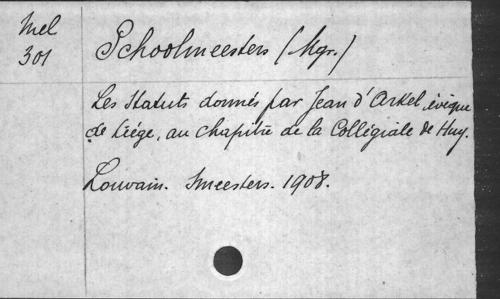 Mel
301
Schoolmeesters (Mgr.)
Les Statuts donnés par Jean d'Arkel, évêque
de Liége, au chapitre de la Collégiale de Huy.
Louvain. Smeesters. 1908.